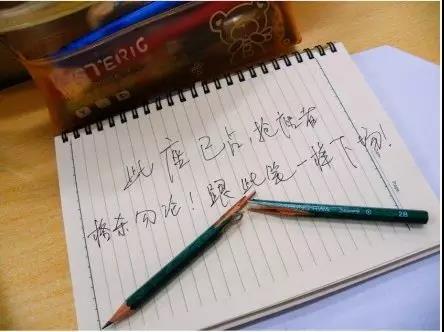 STERIG
此座已占,抢座者
格杀勿论!跟此笔一样下场!
2B